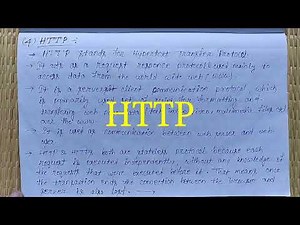 HTTP :-
→ HTTP stands for Hypertext Transfer Protocol.
→ It acts as a request response protocol used mainly to
access data from the world wide web (www).
→ It is a server and client communication protocol, which
is primarily used set of rules for formatting and
transferring web
over the www.
→ It is used as communication between web server and web
user.
HTTP
protocol because each
request is executed independently, without any knowledge of
the requests that were executed before it. That means once
the transaction ends the connection between the browser and
server is also lost.